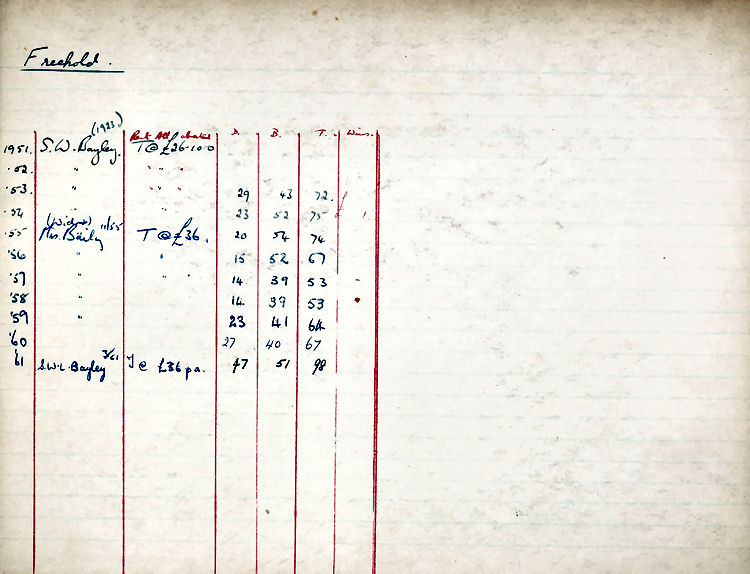 Freehold.
(1923)
Rent All abated D. B. T. Wins.
1951. S.W. Bayley. T @ £26-10-0
'52. " " " "
'53. " " " " 29 43 72.
'54 " " 23 52 75
(Widow) 11/55
'55 Mrs. Baily T @ £36. 20 54 74
'56 " " 15 52 67
'57 " " " 14 39 53
'58 " 14 39 53
'59 " 23 41 64
'60 27 40 67
'61 S.W.L. Bayley 3/61 T @ £36 pa. 47 51 98